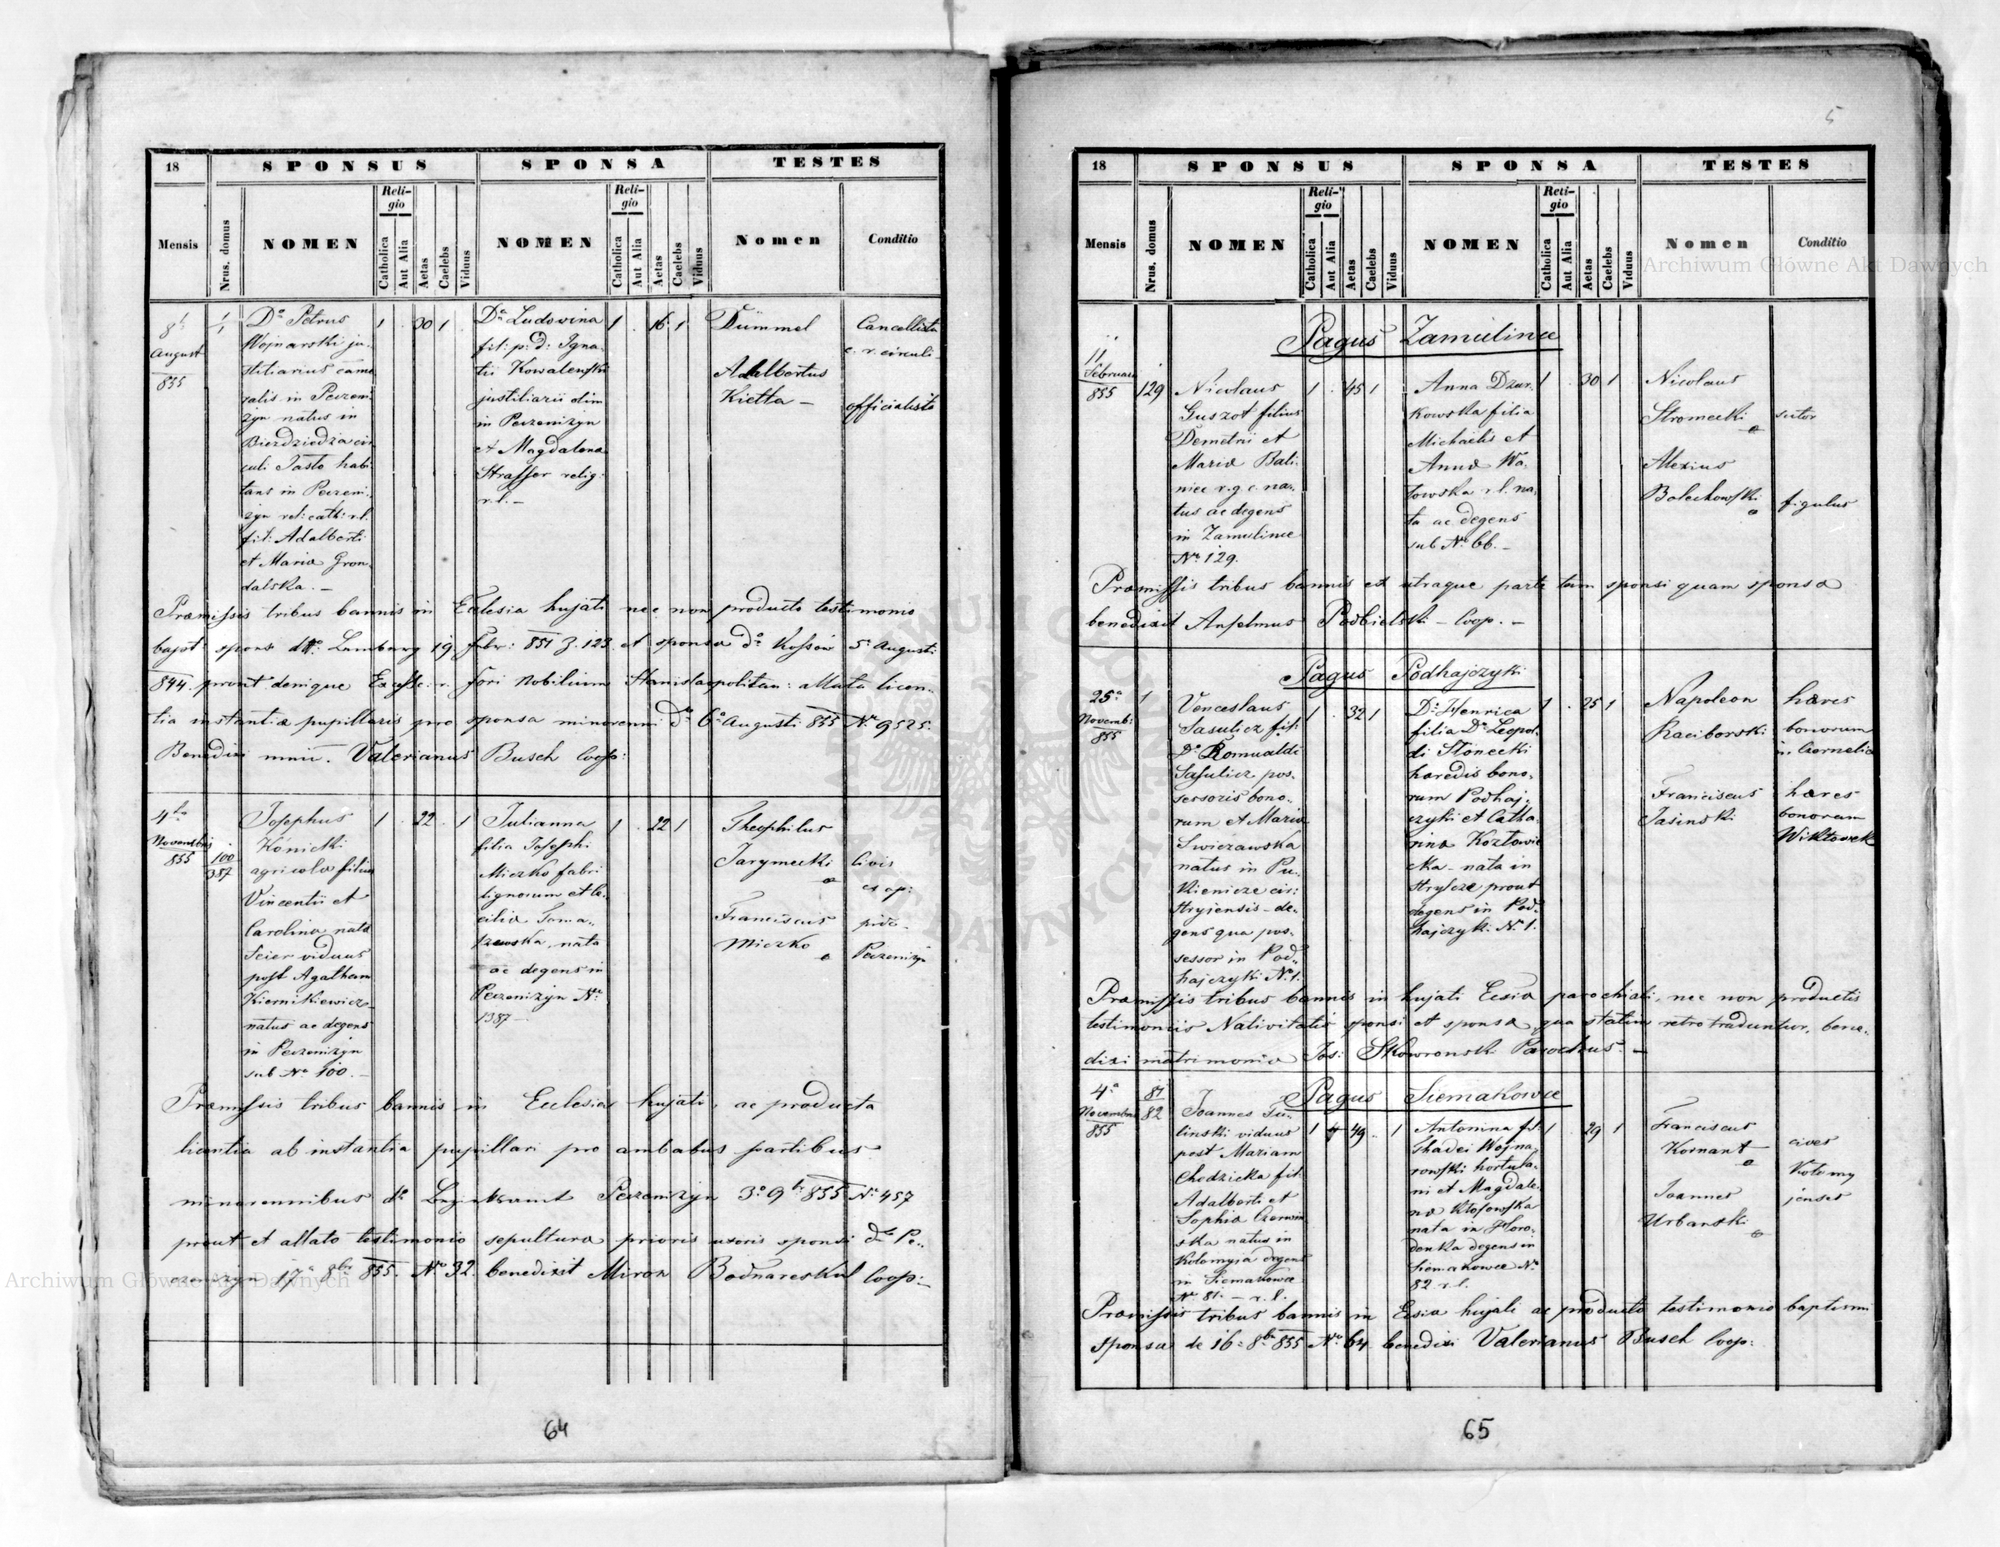 18
SPONSUS
SPONSA
TESTES
Mensis
Nrus. domus
NOMEN
Religio
Catholica
Aut Alia
Aetas
Caelebs
Viduus
NOMEN
Religio
Catholica
Aut Alia
Aetas
Caelebs
Viduus
Nomen
Conditio
August
855
1
1
Petrus
Wojnarski ju-
stitiarius came
ralis in Peczeni
zyn natus in
Bierdziedza cir
culi Jasło habi
tans in Peczeni-
zyn rel: cath: r.l.
fil: Adalberti
et Maria Gron
dalska. -
1 . 30 1
Ludovina
fil: p: d: Igna-
tii Kowalewski
justiliarii olim
in Peczenizyn
et Magdalena
Strasser relig:
r.l. -
1 . 16 1
Dümmel
Adalbertus
Kietta -
Cancellista
c. r. circuli
officialista
Præmissis tribus bannis in Ecclesia hujati nec non producto testimonio
bapt: spons Lemberg 19 Febr: 851 Z. 123 et sponsa Kossów 5 Augusti
844. prout denique fori Nobilium Stanislaopolitan: allata licen-
tia instantia pupillaris pro sponsa minorenni 6 Augusti 855 Nr 9525.
Benedixi Valerianus Busch Coop:
4
Novembris
855
100
387
Josephus
Konicki
agricola filius
Vincentii et
Carolina nata
Seier viduus
post Agatham
Kiernikiewicz
natus ac degens
in Peczenizyn
sub Nr 100. -
1 . 22 . 1
Julianna
filia Josephi
Miczko fabri
lignorum et Ce-
cilia Toma-
szewska, nata
ac degens in
Peczenizyn Nr
387 -
1 . 22 1
Theophilus
Jarymecki
Franciscus
Miczko
Civis
et op:
pidi
Peczenizyn
Præmissis tribus bannis in Ecclesia hujati ac producta
licentia ab instantia pupillari pro ambabus partibus
minorennibus Peczenizyn 3 9br 855 Nr 457
prout et allato testimonio sepultura prioris uxoris sponsi Pe-
czenizyn 17 8br 855. Nr 32. benedixit Miron Bodnareskul Coop:
64
5
18
SPONSUS
SPONSA
TESTES
Mensis
Nrus. domus
NOMEN
Religio
Catholica
Aut Alia
Aetas
Caelebs
Viduus
NOMEN
Religio
Catholica
Aut Alia
Aetas
Caelebs
Viduus
Nomen
Conditio
Archiwum Główne Akt Dawnych
Pagus Zamulince
11
Februar
855
129
Nicolaus
Guszot filius
Demetrii et
Maria Bali-
nice r. g. c. na-
tus ac degens
in Zamulince
Nr 129.
1 . 45 1
Anna Dzur-
kowska filia
Michaelis et
Anna Wa-
towska r. l. na-
ta ac degens
sub Nr 66. -
1 . 30 1
Nicolaus
Stromecki
Alexius
Bolechowski
sutor
figulus
Præmissis tribus bannis ex utraque parte tam sponsi quam sponsa
benedixit Anselmus Podbielski - Coop. -
Pagus Podhajczyki
25
Novemb:
855
1
Venceslaus
Sasulicz fil:
Romualdi
Sasulicz pos-
sessoris bono-
rum et Maria
Swiczawska
natus in Pu-
kienicze cir:
Stryjensis - de-
gens qua pos-
sessor in Pod-
hajczyki Nr 1.
1 . 32 1
Henrica
filia Leopol-
di Słonecki
haredis bono-
rum Podhaj-
czyki et Catha-
rina Kozłowie
cka - nata in
Strysze prout
degens in Pod-
hajczyk: Nr 1.
1 . 25 1
Napoleon
Raciborski
Franciscus
Jasinski
hæres
bonorum
in Czernelica
hæres
bonorum
Præmissis tribus bannis in hujati Ecsia parochiali, nec non productis
testimoniis Nativitatis sponsi et sponsa qua statim retro traduntur, bene-
dixi matrimonio Jos: Skowronski Parochus. -
Pagus Siemakowce
4
Novembris
855
81
82
Joannes Tu-
linski viduus
post Mariam
Chodzicka fil:
Adalberti et
Sophia Czerwin
ska natus in
Kolomyja degens
in Siemakowce
Nr 81. - r. l.
1 49 . 1
Antonina fil:
Thadei Wojna-
rowski hortula-
ni et Magdale-
na Kłosowska
nata in Horo-
denka degens in
Siemakowce Nr
82 r. l.
1 . 29 1
Franciscus
Kornant
Joannes
Urbanski
cives
Kolomy
jenses
Præmissis tribus bannis in Ecsia hujati ac producto testimonio baptismi
sponsa de 16 8br 855 Nr 64 benedixi Valerianus Busch Coop:
65
Archiwum Główne Akt Dawnych